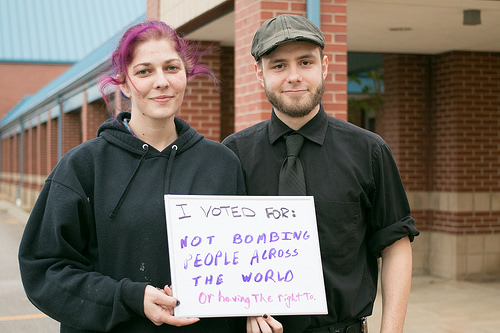 I VOTED FOR:
NOT BOMBING
PEOPLE ACROSS
THE WORLD
Or having The right To.